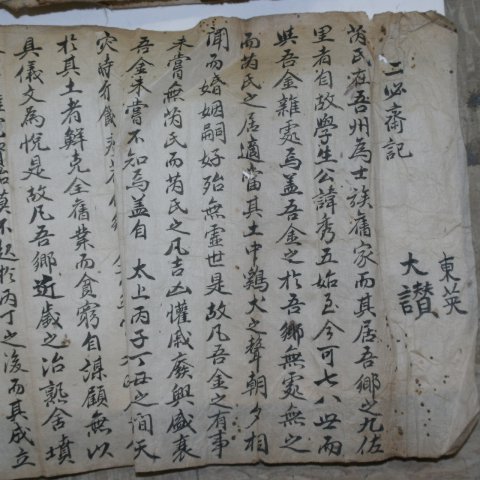 東英
大讃
二必齋記
芮氏在吾州爲士族舊家而其居吾鄉之九佐
里者自故學生公諱秀五始至今可七八世而
與吾金雜處焉盖吾金之於吾鄉無處無之
而芮氏之居適當其土中鷄犬之聲朝夕相
聞而婚姻嗣好殆無虛世是故凡吾金之有事
未嘗無芮氏而芮氏之凡吉凶懽戚廢興盛衰
吾金未嘗不知焉盖自 太上丙子丁丑之間天
灾時行饑
於其土者鮮克全舊業而食窮自謀顧無以
具儀文爲悅是故凡吾鄉近歲之治塾舍墳
莫不起於丙丁之後而其成立